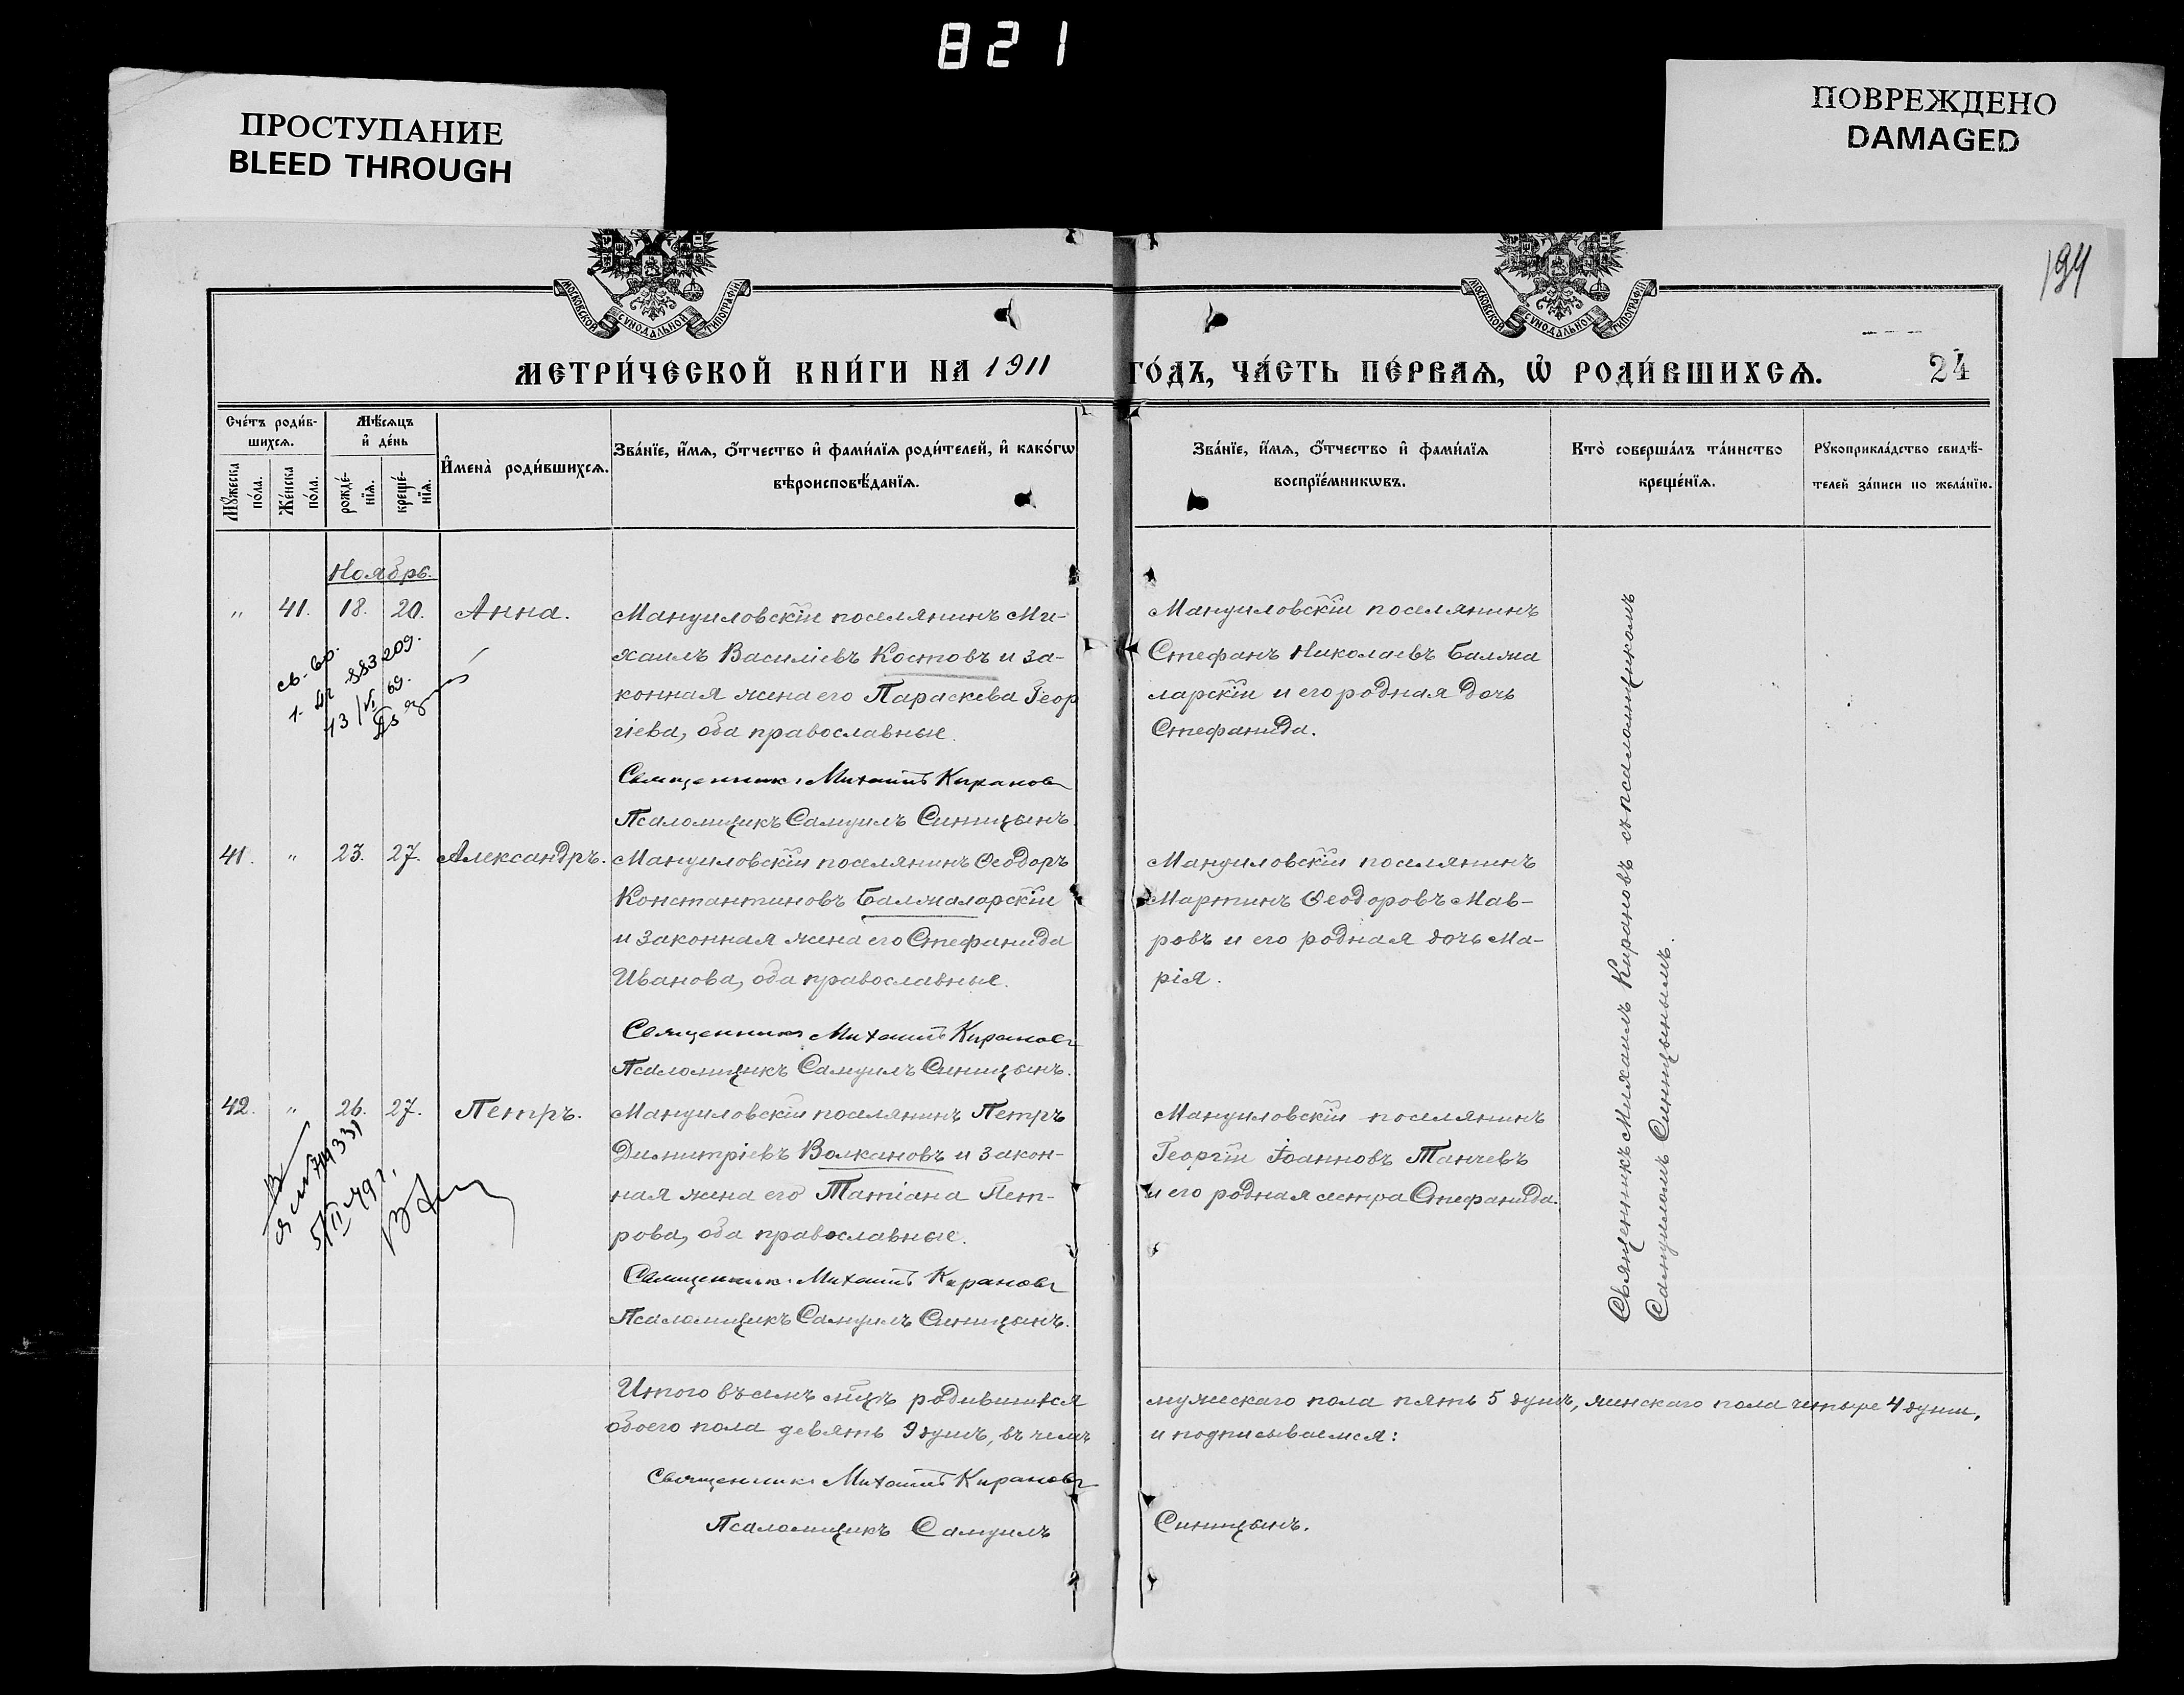 821
ПРОСТУПАНИЕ
BLEED THROUGH
ПОВРЕЖДЕНО
DAMAGED
194
МОСКОВСКОЙ СѴНОДАЛЬНОЙ ТИПОГРАФІИ
МОСКОВСКОЙ СѴНОДАЛЬНОЙ ТИПОГРАФІИ
МЕТРИ́ЧЕСКОЙ КНИ́ГИ НА 1911 ГО́ДЪ, ЧА́СТЬ ПЕ́РВАѦ, Ѡ҆ РОДИ́ВШИХСѦ. 24
Сче́тъ роди́в-
шихсѧ.
Мѣ́сѧцъ
и҆ де́нь
Мꙋ́жеска по́ла.
Же́нска по́ла.
рожде́-нїѧ.
креще́-нїѧ.
И҆мена̀ роди́вшихсѧ.
Зва́нїе, и҆́мѧ, ѻ҆́тчество и҆ фами́лїѧ роди́телей, и҆ како́гѡ
вѣроисповѣ́данїѧ.
Зва́нїе, и҆́мѧ, ѻ҆́тчество и҆ фами́лїѧ
воспрїе́мникѡвъ.
Кто̀ соверша́лъ та́инство
креще́нїѧ.
Рꙋкоприкла́дство свидѣ́-
телей за́писи по жела́нїю.
Ноябрь.
" 41. 18. 20. Анна.
Мануиловскій поселянинъ Ми-
хаилъ Василіевъ Костовъ и за-
конная жена его Параскева Геор
гіева, оба православные.
Священникъ Михаилъ Кирановъ
Псаломщикъ Самуилъ Синицынъ.
Мануиловскій поселянинъ
Стефанъ Николаевъ Балжа
ларскій и его родная дочь
Стефанида.
41. " 23. 27. Александръ.
Мануиловскій поселянинъ Ѳеодоръ
Константиновъ Балжаларскій
и законная жена его Стефанида
Иванова, оба православные.
Священникъ Михаилъ Кирановъ
Псаломщикъ Самуилъ Синицынъ.
Мануиловскій поселянинъ
Мартинъ Ѳеодоровъ Мав-
ровъ и его родная дочь Ма-
рія.
42. " 26. 27. Петръ.
Мануиловскій поселянинъ Петръ
Димитріевъ Волкановъ и закон-
ная жена его Татіана Пет-
рова, оба православные.
Священникъ Михаилъ Кирановъ
Псаломщикъ Самуилъ Синицынъ.
Мануиловскій поселянинъ
Георгій Іоанновъ Танчевъ
и его родная сестра Стефанида.
Священникъ Михаилъ Кирановъ съ псаломщикомъ
Самуиломъ Синицынымъ.
Итого въ семъ м-цѣ родившихся
обоего пола девять 9 душъ, въ чемъ
мужескаго пола пять 5 душъ, женскаго пола четыре 4 души,
и подписываемся:
Священникъ Михаилъ Кирановъ
Псаломщикъ Самуилъ Синицынъ.